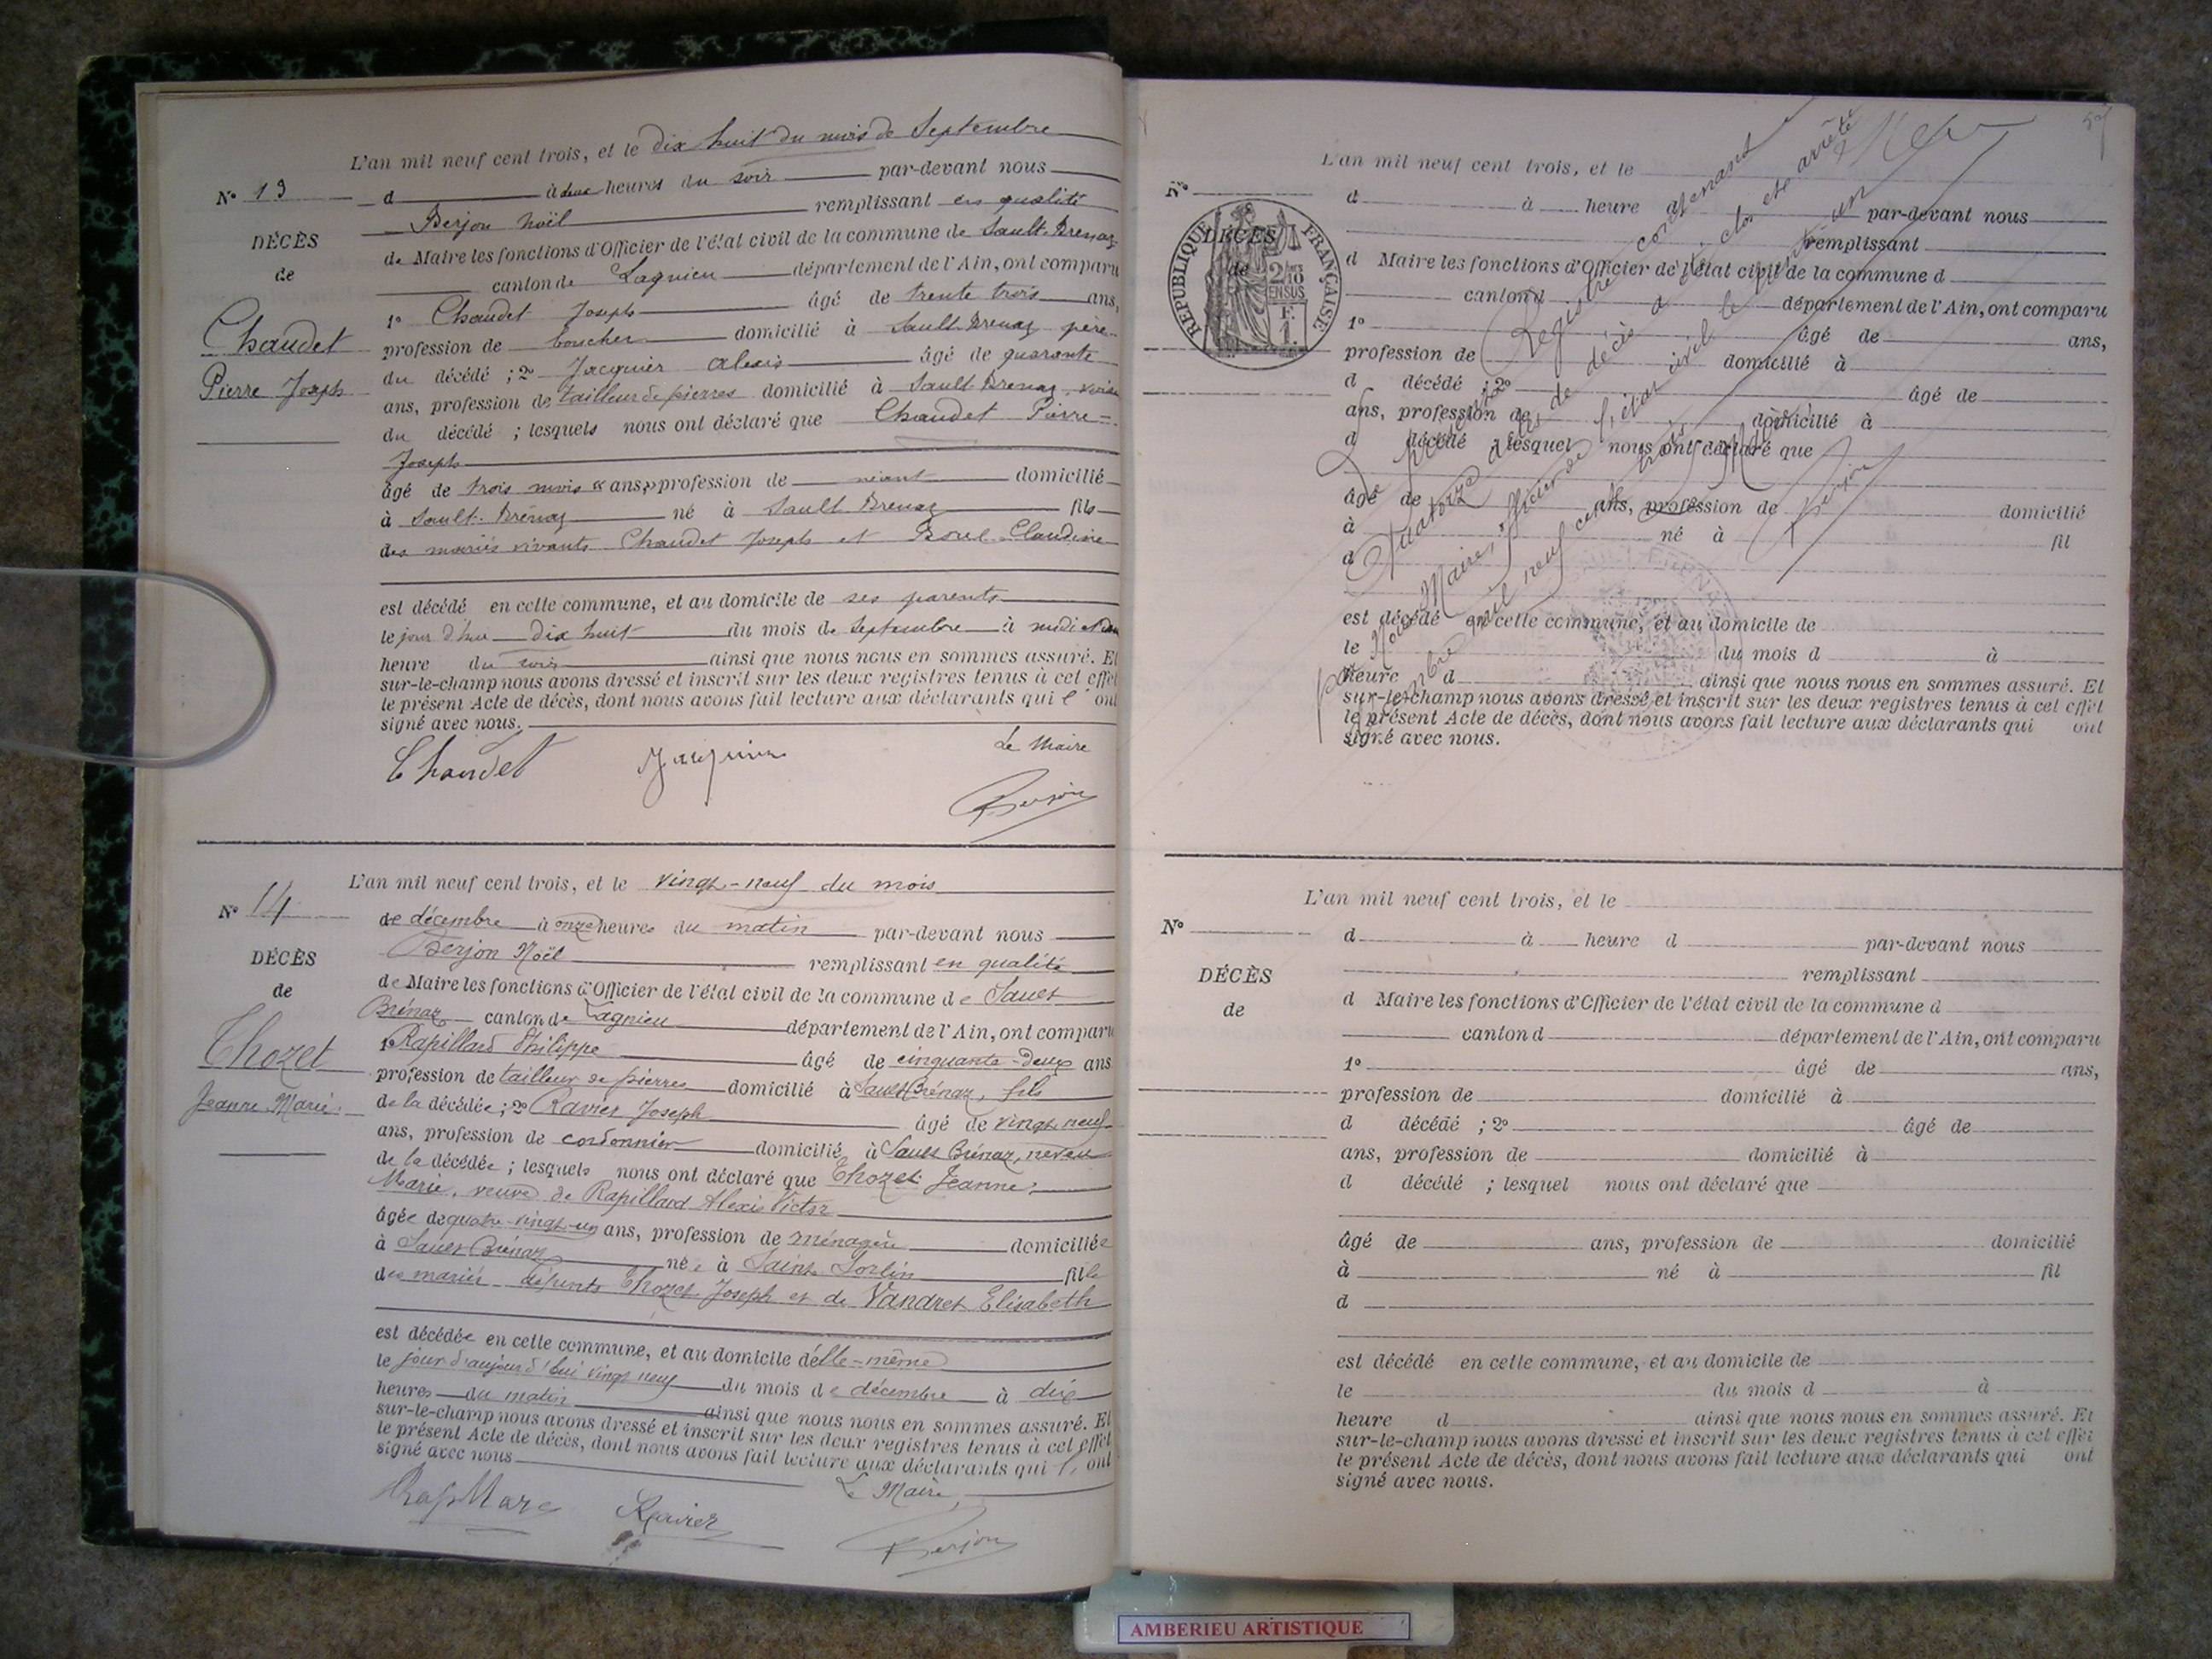 L'an mil neuf cent trois, et le dix huit du mois de Septembre
N° 13
d à deux heures du soir par-devant nous
Berjon Noël remplissant en qualité
DÉCÈS
de
Chaudet
Pierre Joseph
de Maire les fonctions d'Officier de l'état civil de la commune de Sault-Brenaz
canton de Lagnieu département de l'Ain, ont comparu
1° Chaudet Joseph âgé de trente trois ans,
profession de boucher domicilié à Sault-Brenaz père
du décédé ; 2° Jacquier Alexis âgé de quarante
ans, profession de tailleur de pierres domicilié à Sault Brenaz, voisin
du décédé ; lesquels nous ont déclaré que Chaudet Pierre=
Joseph
âgé de trois mois « ans » profession de néant domicilié
à Sault-Brénaz né à Sault Brenaz fils
des mariés vivants Chaudet Joseph et Borel Claudine
est décédé en cette commune, et au domicile de ses parents
le jour d'hui dix huit du mois de Septembre à midi et demi
heure du soir ainsi que nous nous en sommes assuré. Et
sur-le-champ nous avons dressé et inscrit sur les deux registres tenus à cet effet
le présent Acte de décès, dont nous avons fait lecture aux déclarants qui l' ont
signé avec nous.
Chaudet Jacquier Le Maire
Berjon
L'an mil neuf cent trois, et le vingt-neuf du mois
N° 14
de décembre à onze heures du matin par-devant nous
Berjon Noël remplissant en qualité
DÉCÈS
de
Thozet
Jeanne-Marie
de Maire les fonctions d'Officier de l'état civil de la commune de Sault
Brénaz canton de Lagnieu département de l'Ain, ont comparu
1° Rapillard Philippe âgé de cinquante-deux ans
profession de tailleur de pierres domicilié à Sault Brénaz, fils
de la décédée ; 2° Ravier Joseph âgé de vingt neuf
ans, profession de cordonnier domicilié à Sault Brénaz, neveu
de la décédée ; lesquels nous ont déclaré que Thozet Jeanne-
Marie, veuve de Rapillard Alexis Victor
âgée de quatre-vingt-un ans, profession de ménagère domiciliée
à Sault Brénaz née à Saint Sorlin fille
des mariés défunts Thozet Joseph et de Vandret Elisabeth
est décédée en cette commune, et au domicile d'elle-même
le jour d'aujourd'hui vingt neuf du mois de décembre à dix
heures du matin ainsi que nous nous en sommes assuré. Et
sur-le-champ nous avons dressé et inscrit sur les deux registres tenus à cet effet
le présent Acte de décès, dont nous avons fait lecture aux déclarants qui l' ont
signé avec nous
Le Maire,
Ravier
Berjon
L'an mil neuf cent trois, et le
N°
d à heure d par-devant nous
remplissant
DÉCÈS
de
RÉPUBLIQUE FRANÇAISE
d Maire les fonctions d'Officier de l'état civil de la commune d
canton d département de l'Ain, ont comparu
1° âgé de ans,
profession de domicilié à
d décédé ; 2° âgé de
ans, profession de domicilié à
d décédé ; lesquel nous ont déclaré que
âgé de ans, profession de domicilié
à né à fil
d
est décédé en cette commune, et au domicile de
le du mois d à
heure d ainsi que nous nous en sommes assuré. Et
sur-le-champ nous avons dressé et inscrit sur les deux registres tenus à cet effet
le présent Acte de décès, dont nous avons fait lecture aux déclarants qui ont
signé avec nous.
Le présent Registre contenant
Quatorze actes de décès a été clos et arrêté
par Nous Maire, officier de l'état civil le trente un
décembre mil neuf cent trois
Le Maire
Berjon
L'an mil neuf cent trois, et le
N°
d à heure d par-devant nous
remplissant
DÉCÈS
de
d Maire les fonctions d'Officier de l'état civil de la commune d
canton d département de l'Ain, ont comparu
1° âgé de ans,
profession de domicilié à
d décédé ; 2° âgé de
ans, profession de domicilié à
d décédé ; lesquel nous ont déclaré que
âgé de ans, profession de domicilié
à né à fil
d
est décédé en cette commune, et au domicile de
le du mois d à
heure d ainsi que nous nous en sommes assuré. Et
sur-le-champ nous avons dressé et inscrit sur les deux registres tenus à cet effet
le présent Acte de décès, dont nous avons fait lecture aux déclarants qui ont
signé avec nous.
AMBERIEU ARTISTIQUE